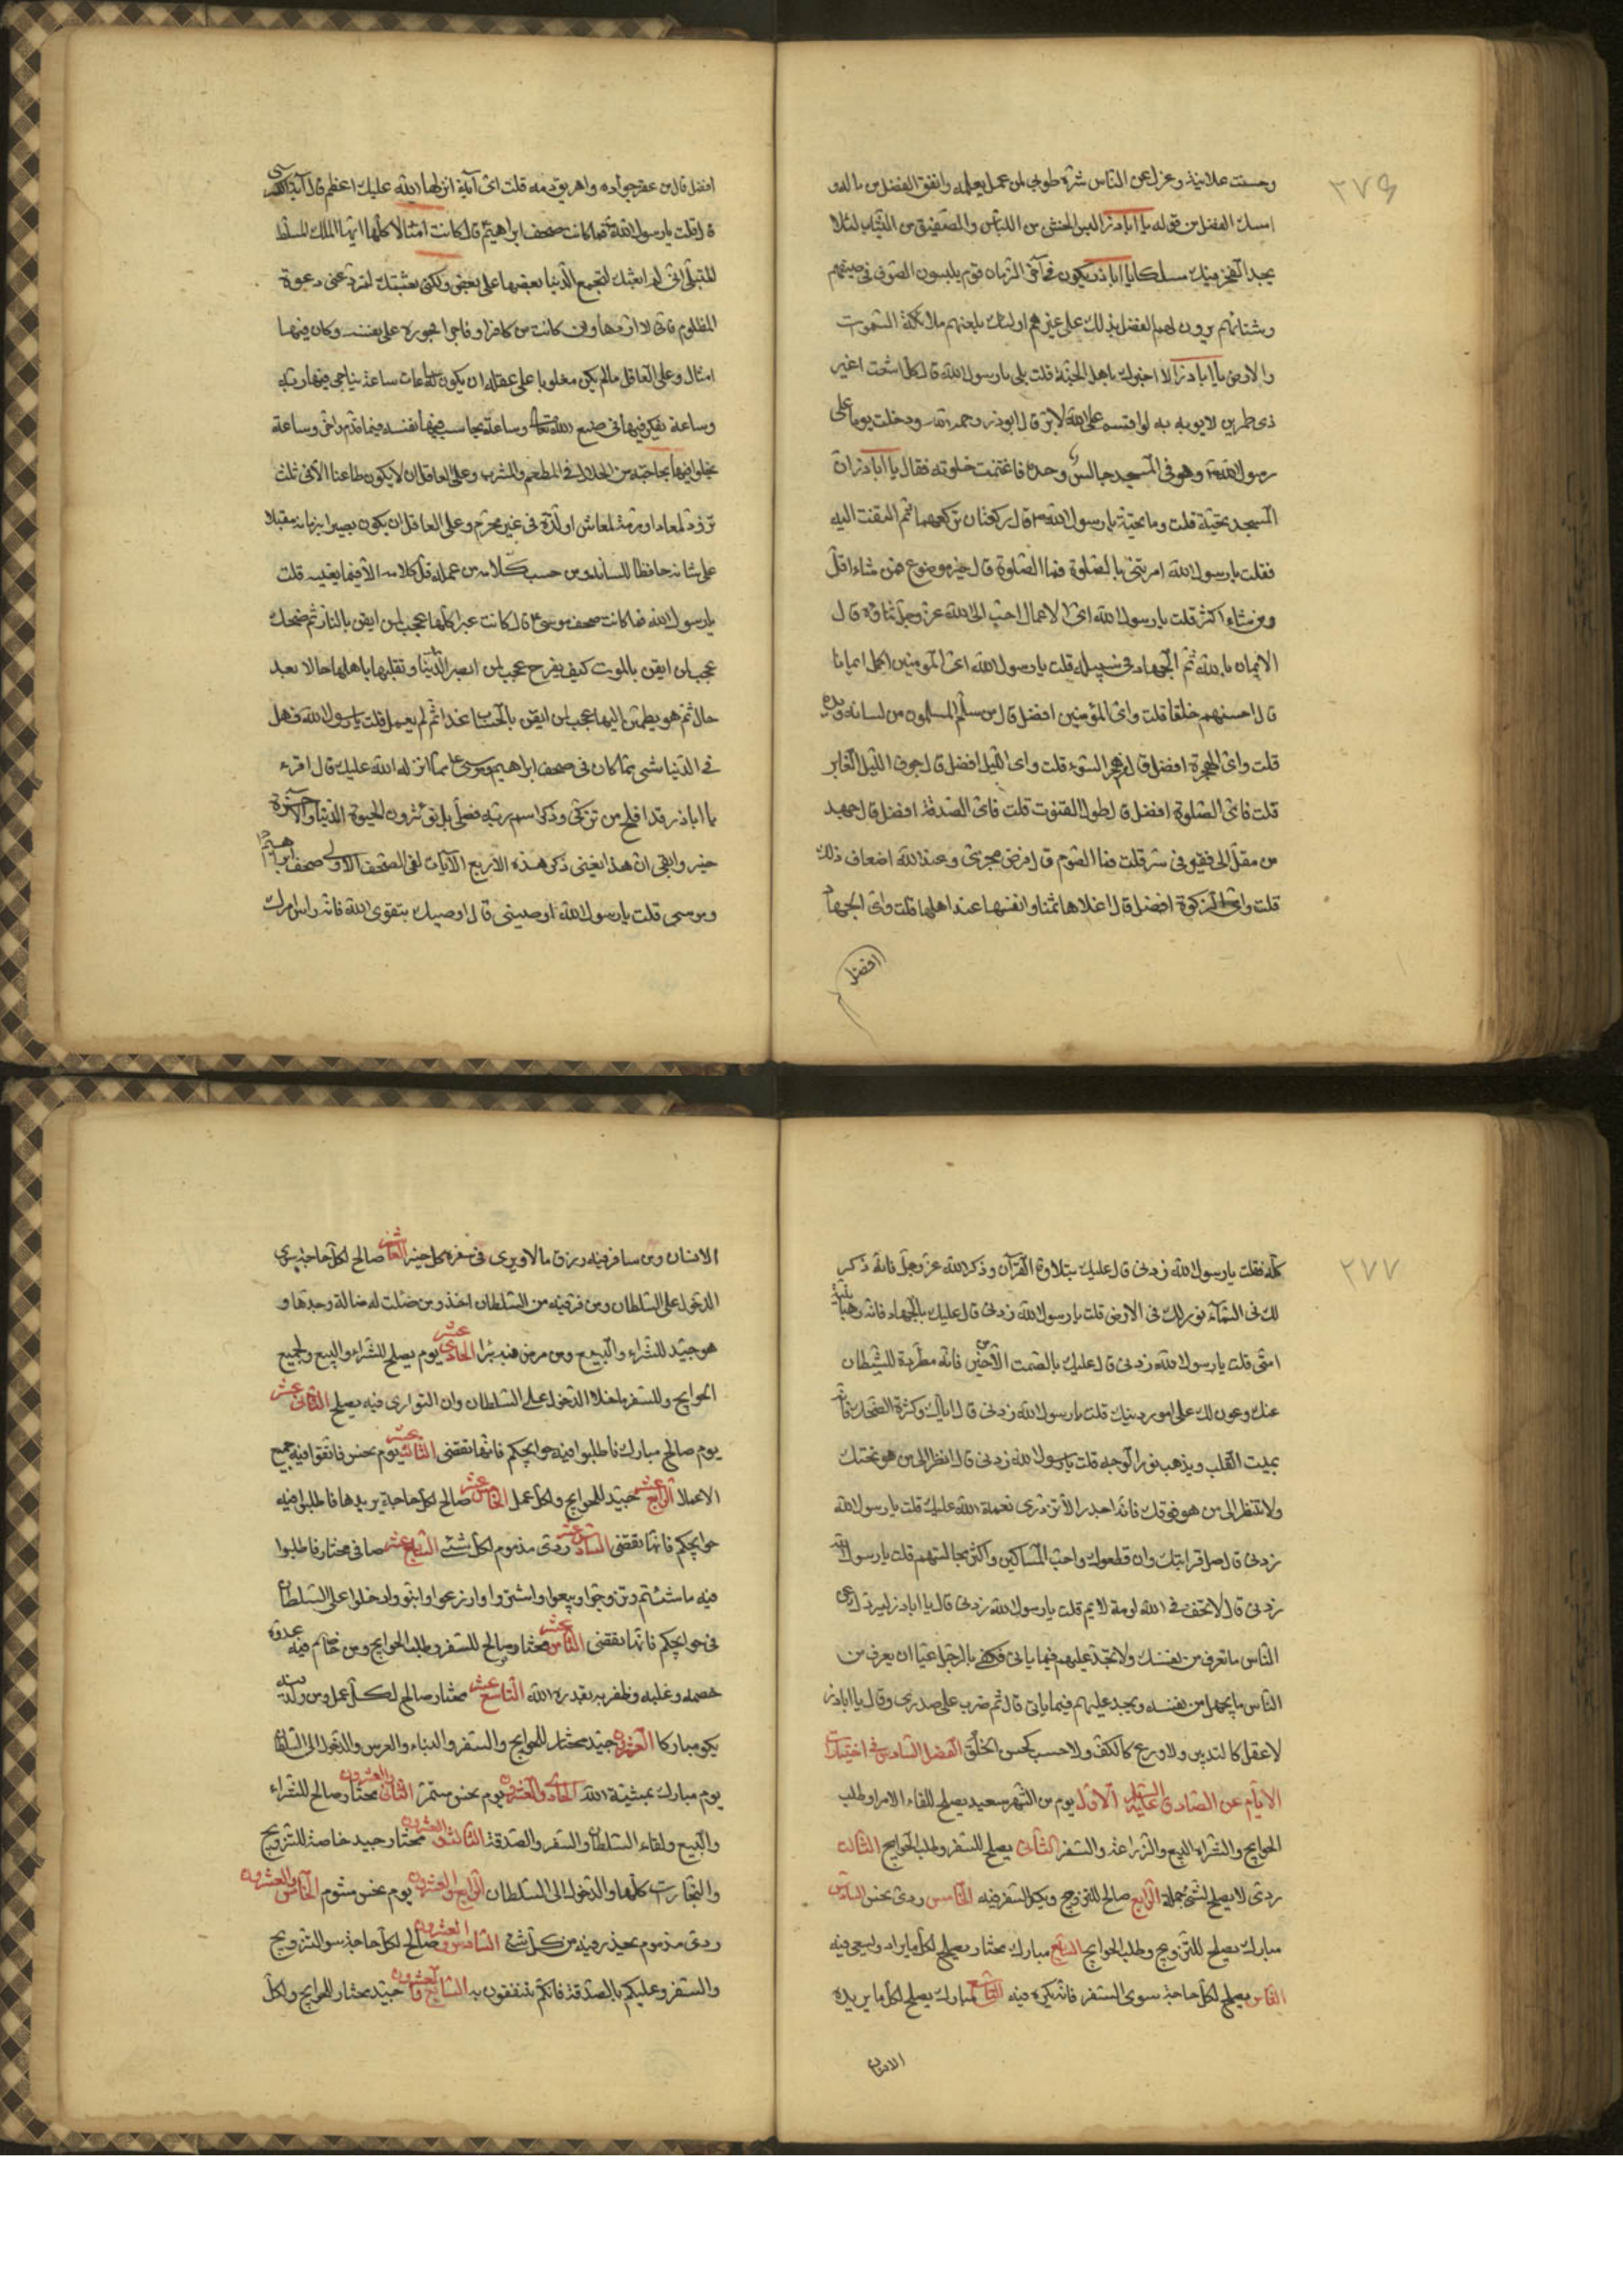 ٢٧٦
وحسنت علانيته وعزل عن الناس شره طوبى لمن عمل بعلمه وانفق الفضل من ماله و
امسك الفضل من قوله يا اباذر البس الخشن من اللباس والصفيق من الثياب لئلا
يجد الفخر فيك مسلكا يا اباذر يكون في آخر الزمان قوم يلبسون الصوف في صيفهم
وشتائهم يرون لهم الفضل بذلك على غيرهم اولئك يلعنهم ملائكة السموات
والارض يا اباذر الا اخبرك باهل الجنة قلت بلى يا رسول الله قال كل اشعث اغبر
ذى طمرين لا يوبه به لو اقسم على الله لابره قال ابوذر رحمه الله ودخلت يوما على
رسول الله وهو في المسجد جالس وحده فاغتنمت خلوته فقال يا اباذر ان
المسجد تحية قلت وما تحيته يا رسول الله قال ركعتان تركعهما ثم التفت اليه
فقلت يا رسول الله امرتنى بالصلوة فما الصلوة قال خير موضوع فمن شاء اقل
ومن شاء اكثر قلت يا رسول الله اى الاعمال احب الى الله عز وجل قال
الايمان بالله ثم الجهاد في سبيله قلت يا رسول الله اى المؤمنين اكمل ايمانا
قال احسنهم خلقا قلت واى المؤمنين افضل قال من سلم المسلمون من لسانه ويده
قلت واى الهجرة افضل قال من هجر السوء قلت واى الليل افضل قال جوف الليل الغابر
قلت فاى الصلوة افضل قال طول القنوت قلت فاى الصدقة افضل قال جهد
من مقل الى فقير في سر قلت فما الصوم قال فرض مجزى وعند الله اضعاف ذلك
قلت واى الزكوة افضل قال اغلاها ثمنا وانفسها عند اهلها قلت واى الجهاد
افضل
افضل قال من عقر جواده واهريق دمه قلت اى آية انزلها الله عليك اعظم قال آية الكرسى
قال قلت يا رسول الله فما كانت صحف ابراهيم قال كانت امثالا كلها ايها الملك المسلط
المبتلى انى لم ابعثك لتجمع الدنيا بعضها على بعض ولكن بعثتك لترد عنى دعوة
المظلوم فانى لا اردها وان كانت من كافر او فاجر فجوره على نفسه وكان فيها
امثال وعلى العاقل ما لم يكن مغلوبا على عقله ان يكون له ساعات ساعة يناجى فيها ربه
وساعة يفكر فيها في صنع الله تعالى وساعة يحاسب فيها نفسه فيما قدم واخر وساعة
يخلو فيها بحاجته من الحلال في المطعم والمشرب وعلى العاقل ان لا يكون طاعنا الا في ثلث
تزود لمعاد او مرمة لمعاش او لذة في غير محرم وعلى العاقل ان يكون بصيرا بزمانه مقبلا
على شانه حافظا للسانه ومن حسب كلامه من عمله قل كلامه الا فيما يعنيه قلت
يا رسول الله فما كانت صحف موسى قال كانت عبرا كلها عجب لمن ايقن بالنار ثم ضحك
عجب لمن ايقن بالموت كيف يفرح عجب لمن ابصر الدنيا وتقلبها باهلها حالا بعد
حال ثم هو يطمئن اليها عجب لمن ايقن بالحساب غدا ثم لم يعمل قلت يا رسول الله فهل
في الدنيا شى مما كان في صحف ابراهيم وموسى مما انزله الله عليك قال اقرء
يا اباذر قد افلح من تزكى وذكر اسم ربه فصلى بل تؤثرون الحيوة الدنيا والآخرة
خير وابقى ان هذا يعنى ذكر هذه الاربع الآيات لفى الصحف الاولى صحف ابراهيم
وموسى قلت يا رسول الله اوصينى قال اوصيك بتقوى الله فانه راس امرك
٢٧٧
كله فقلت يا رسول الله زدنى قال عليك بتلاوة القرآن وذكر الله عز وجل فانه ذكر
لك في السماء نور لك في الارض قلت يا رسول الله زدنى قال عليك بالجهاد فانه رهبانية
امتى قلت يا رسول الله زدنى قال عليك بالصمت الا من خير فانه مطردة للشيطان
عنك وعون لك على امور دينك قلت يا رسول الله زدنى قال اياك وكثرة الضحك فانه
يميت القلب ويذهب نور الوجه قلت يا رسول الله زدنى قال انظر الى من هو تحتك
ولا تنظر الى من هو فوقك فانه اجدر الا تزدرى نعمة الله عليك قلت يا رسول الله
زدنى قال صل قرابتك وان قطعوك واحب المساكين واكثر مجالستهم قلت يا رسول الله
زدنى قال لا تخف في الله لومة لايم قلت يا رسول الله زدنى قال يا اباذر ليردك عن
الناس ما تعرف من نفسك ولا تجد عليهم فيما ياتى فكفى بالرجل عيبا ان يعرف من
الناس ما يجهل من نفسه ويجد عليهم فيما ياتى قال ثم ضرب على صدرى وقال يا اباذر
لا عقل كالتدبير ولا ورع كالكف ولا حسب كحسن الخلق الفصل السادس في اختيارات
الايام عن الصادق عليه السلام الاول يوم من الشهر سعيد يصلح للقاء الامرا وطلب
الحوايج والشراء والبيع والزراعة والسفر الثانى يصلح للسفر وطلب الحوايج الثالث
ردى لا يصلح لشئ جملة الرابع صالح للتزويج ويكره السفر فيه الخامس ردى نحس السادس
مبارك يصلح للتزويج وطلب الحوايج السابع مبارك مختار يصلح لكل ما يراد ويسعى فيه
الثامن يصلح لكل حاجة سوى السفر فانه يكره فيه التاسع مبارك يصلح لكل ما يريده
الانسان
الانسان ومن سافر فيه رزق مالا ويرى في سفره كل خير العاشر صالح لكل حاجة سوى
الدخول على السلطان ومن فر فيه من السلطان اخذ ومن ضلت له ضالة وجدها و
هو جيد للشراء والبيع ومن مرض فيه برا الحادى عشر يوم يصلح للشراء والبيع ولجميع
الحوايج وللسفر ما خلا الدخول على السلطان وان التوارى فيه يصلح الثانى عشر
يوم صالح مبارك فاطلبوا فيه حوايجكم فانها تقضى الثالث عشر يوم نحس فاتقوا فيه جميع
الاعمال الرابع عشر جيد للحوايج ولكل عمل الخامس عشر صالح لكل حاجة يريدها فاطلبوا فيه
حوايجكم فانها تقضى السادس عشر ردى مذموم لكل شئ السابع عشر صافى مختار فاطلبوا
فيه ما شئتم وتزوجوا وبيعوا واشتروا وازرعوا وابنوا وادخلوا على السلطان
في حوايجكم فانها تقضى الثامن عشر مختار صالح للسفر وطلب الحوايج ومن خاصم فيه عدوه
خصمه وغلبه وظفر به بقدرة الله التاسع عشر مختار صالح لكل عمل ومن ولد فيه
يكون مباركا العشرون جيد مختار للحوايج والسفر والبناء والعرس والدخول الى السلطان
يوم مبارك بمشية الله الحادى والعشرون يوم نحس مستمر الثانى والعشرون مختار صالح للشراء
والبيع ولقاء السلطان والسفر والصدقة الثالث والعشرون مختار جيد خاصة للتزويج
والتجارات كلها والدخول الى السلطان الرابع والعشرون يوم نحس مشوم الخامس والعشرون
ردى مذموم يحذر فيه من كل شئ السادس والعشرون صالح لكل حاجة سوى التزويج
والسفر وعليكم بالصدقة فانكم تنتفعون به السابع والعشرون جيد مختار للحوايج ولكل